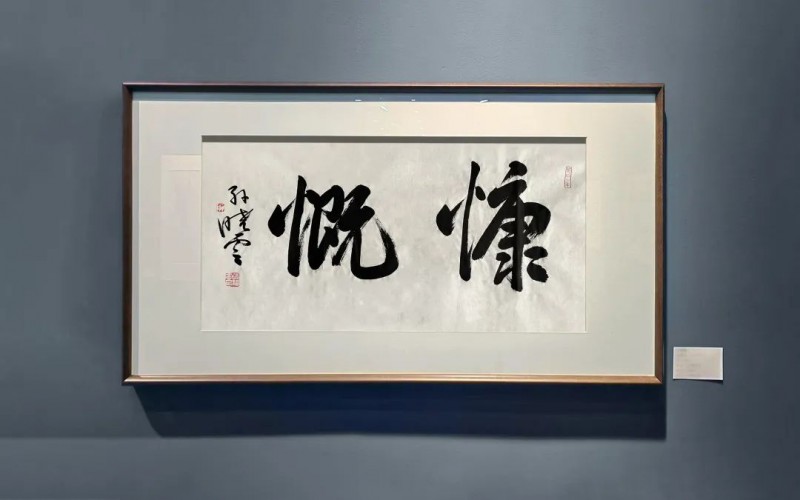 慷慨
孙晓云